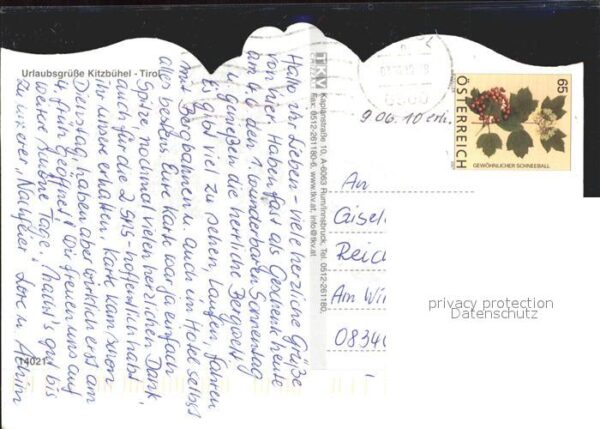 Urlaubsgrüße Kitzbühel - Tirol
Hallo ihr Lieben - viele herzliche Grüße
von hier. Haben fast als Geschenk heute
am 4.6. den 1. wunderbaren Sonnentag
u. genießen die herrliche Bergwelt
Es gibt viel zu sehen, laufen, fahren
mit Bergbahnen u. auch im Hotel selbst
alles bestens. Eure Karte war ja einfach
Spitze, nochmal vielen herzlichen Dank,
auch für die 2 SMS hoffentlich habt
ihr unser erhalten. Karte kam schon
Dienstag, haben aber wirklich erst am
4. früh geöffnet! Wir freuen uns auf
weitere schöne Tage! Macht's gut bis
zu unserer "Nachfeier" Lore u. Achim
14021
TKV
Kaplanstraße 10, A-6063 Rum/Innsbruck, Tel. 0512-261180,
Fax: 0512-261180-6, www.tkv.at, info@tkv.at
9.06.10 erh.
65
ÖSTERREICH
GEWÖHNLICHER SCHNEEBALL
An
Gisel
Reic
Am Wi
0834
privacy protection
Datenschutz